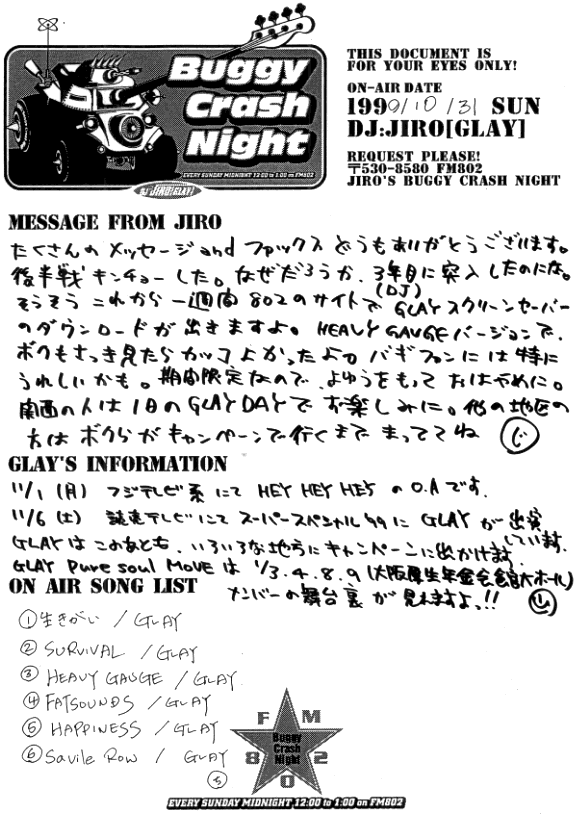 Buggy
Crash
Night
EVERY SUNDAY MIDNIGHT 12:00 to 1:00 on FM802
DJ JIRO[GLAY]
THIS DOCUMENT IS
FOR YOUR EYES ONLY!
ON-AIR DATE
1999/10/31 SUN
DJ:JIRO[GLAY]
REQUEST PLEASE!
〒530-8580 FM802
JIRO'S BUGGY CRASH NIGHT
MESSAGE FROM JIRO
たくさんの メッセージ and ファックス どうもありがとうございます。
後半戦 キンチョーした。なぜだろうか、3年目に突入したのにな。
(DJ)
そうそう これから 一週間 802のサイトで GLAYスクリーンセーバー
のダウンロードが出きますよ。HEAVY GAUGEバージョンで、
ボクもさっき見たらカッコよかったよっ バギファンには特に
うれしいかも。期間限定なので よゆうをもって おはやめに。
関西の人は1日のGLAY DAYで お楽しみに。他の地区の
方は ボクらがキャンペーンで行くまで まっててね (じ)
GLAY'S INFORMATION
11/1 (月) フジテレビ系にて HEY HEY HEY の O.Aです.
11/6 (土) 読売テレビにて スーパースペシャル'99に GLAYが出演
しています.
GLAYはこのあとも、いろいろな地方にキャンペーンに出かけます.
GLAY Pure soul MOVE は 11/3.4.8.9 (大阪厚生年金会館大ホール)
メンバーの舞台裏が見れますよっ!!
ON AIR SONG LIST
① 生きがい / GLAY
② SURVIVAL / GLAY
③ HEAVY GAUGE / GLAY
④ FATSOUNDS / GLAY
⑤ HAPPINESS / GLAY
⑥ Savile Row / GLAY
FM
802
Buggy
Crash
Night
EVERY SUNDAY MIDNIGHT 12:00 to 1:00 on FM802